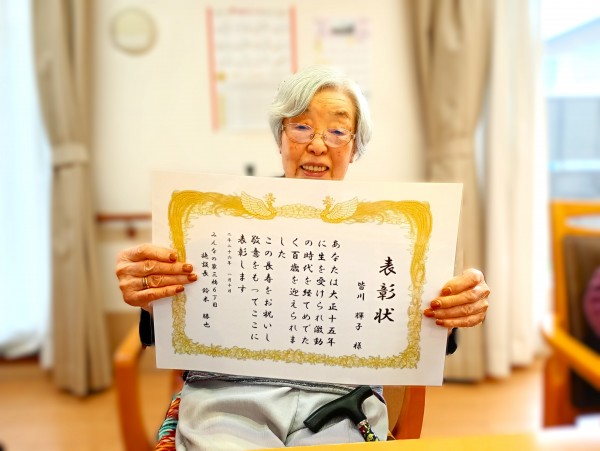 表彰状
皆川 輝子 様
あなたは大正十五年
に生を受けられ激動
の時代を経てめでた
く百歳を迎えられま
した
この長寿をお祝いし
敬意をもってここに
表彰します
二〇二六年 一月十日
みんなの家三橋6丁目
施設長 鈴木 勝也